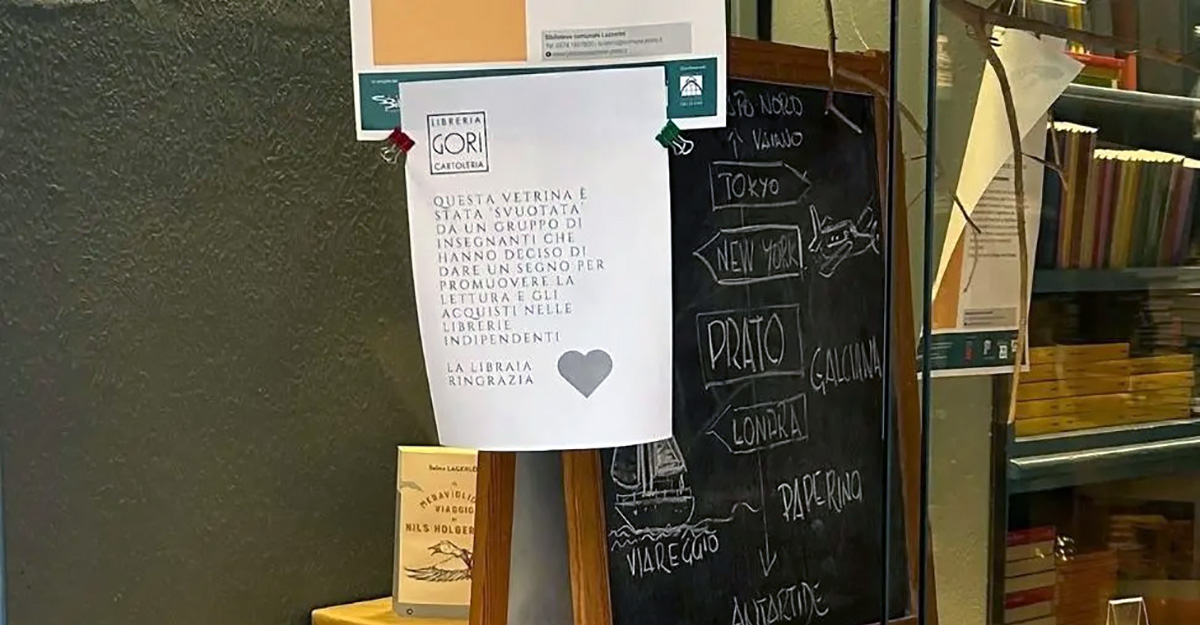 Biblioteca comunale Lazzerini
LIBRERIA
GORI
CARTOLERIA
QUESTA VETRINA È
STATA "SVUOTATA"
DA UN GRUPPO DI
INSEGNANTI CHE
HANNO DECISO DI
DARE UN SEGNO PER
PROMUOVERE LA
LETTURA E GLI
ACQUISTI NELLE
LIBRERIE
INDIPENDENTI
LA LIBRAIA
RINGRAZIA
NORD
VAIANO
TOKYO
NEW YORK
PRATO
GALCIANA
LONDRA
PAPERINO
VIAREGGIO
ANTARTIDE
Selma
MERAVIGLIO
VIAGGIO
DI
NILS HOLGER